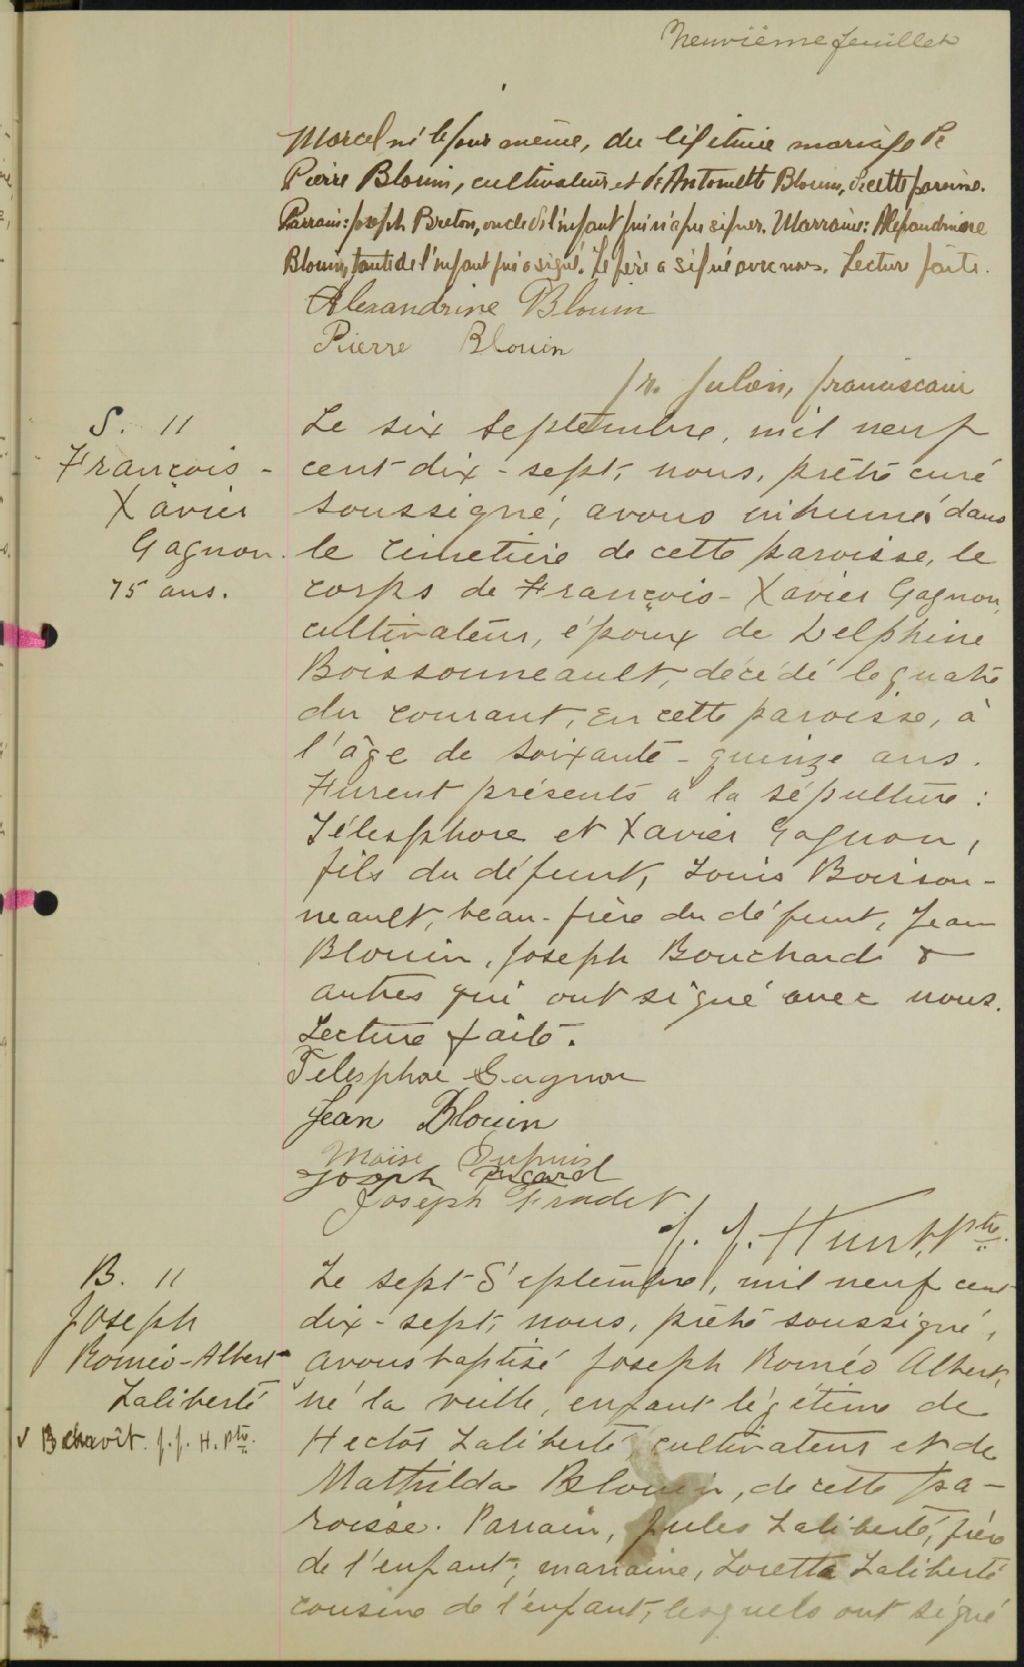 Neuvième feuillet
Marcel né le jour même, du légitime mariage de
Pierre Blouin, cultivateur et de Antoinette Blouin, de cette paroisse.
Parrain: Joseph Breton, oncle de l'enfant qui n'a pu signer. Marraine: Alexandrine
Blouin, tante de l'enfant qui a signé. Le père a signé avec nous. Lecture faite.
Alexandrine Blouin
Pierre Blouin
fr. Julien, franciscain
S. 11
François-
Xavier
Gagnon.
75 ans.
Le six septembre, mil neuf
cent dix-sept, nous, prêtre curé
soussigné, avons inhumé dans
le cimetière de cette paroisse, le
corps de François-Xavier Gagnon,
cultivateur, époux de Delphine
Boissonneault, décédé le quatre
du courant, en cette paroisse, à
l'âge de soixante-quinze ans.
Furent présents à la sépulture:
Télesphore et Xavier Gagnon,
fils du défunt, Louis Boisson-
neault, beau-frère du défunt, Jean
Blouin, Joseph Bouchard &
autres qui ont signé avec nous.
Lecture faite.
Telesphore Gagnon
Jean Blouin
Moïse Dupuis
Joseph Picard
Joseph Fradet
J. J. Hunt, Ptre.
B. 11
Joseph
Roméo-Albert
Laliberté
J. J. H. Ptre.
Le sept Septembre, mil neuf cent
dix-sept, nous, prêtre soussigné,
avons baptisé Joseph Roméo Albert,
né la veille, enfant légitime de
Hector Laliberté, cultivateur et de
Mathilda Blouin, de cette pa-
roisse. Parrain, Jules Laliberté, frère
de l'enfant; marraine, Loretta Laliberté
cousine de l'enfant, lesquels ont signé